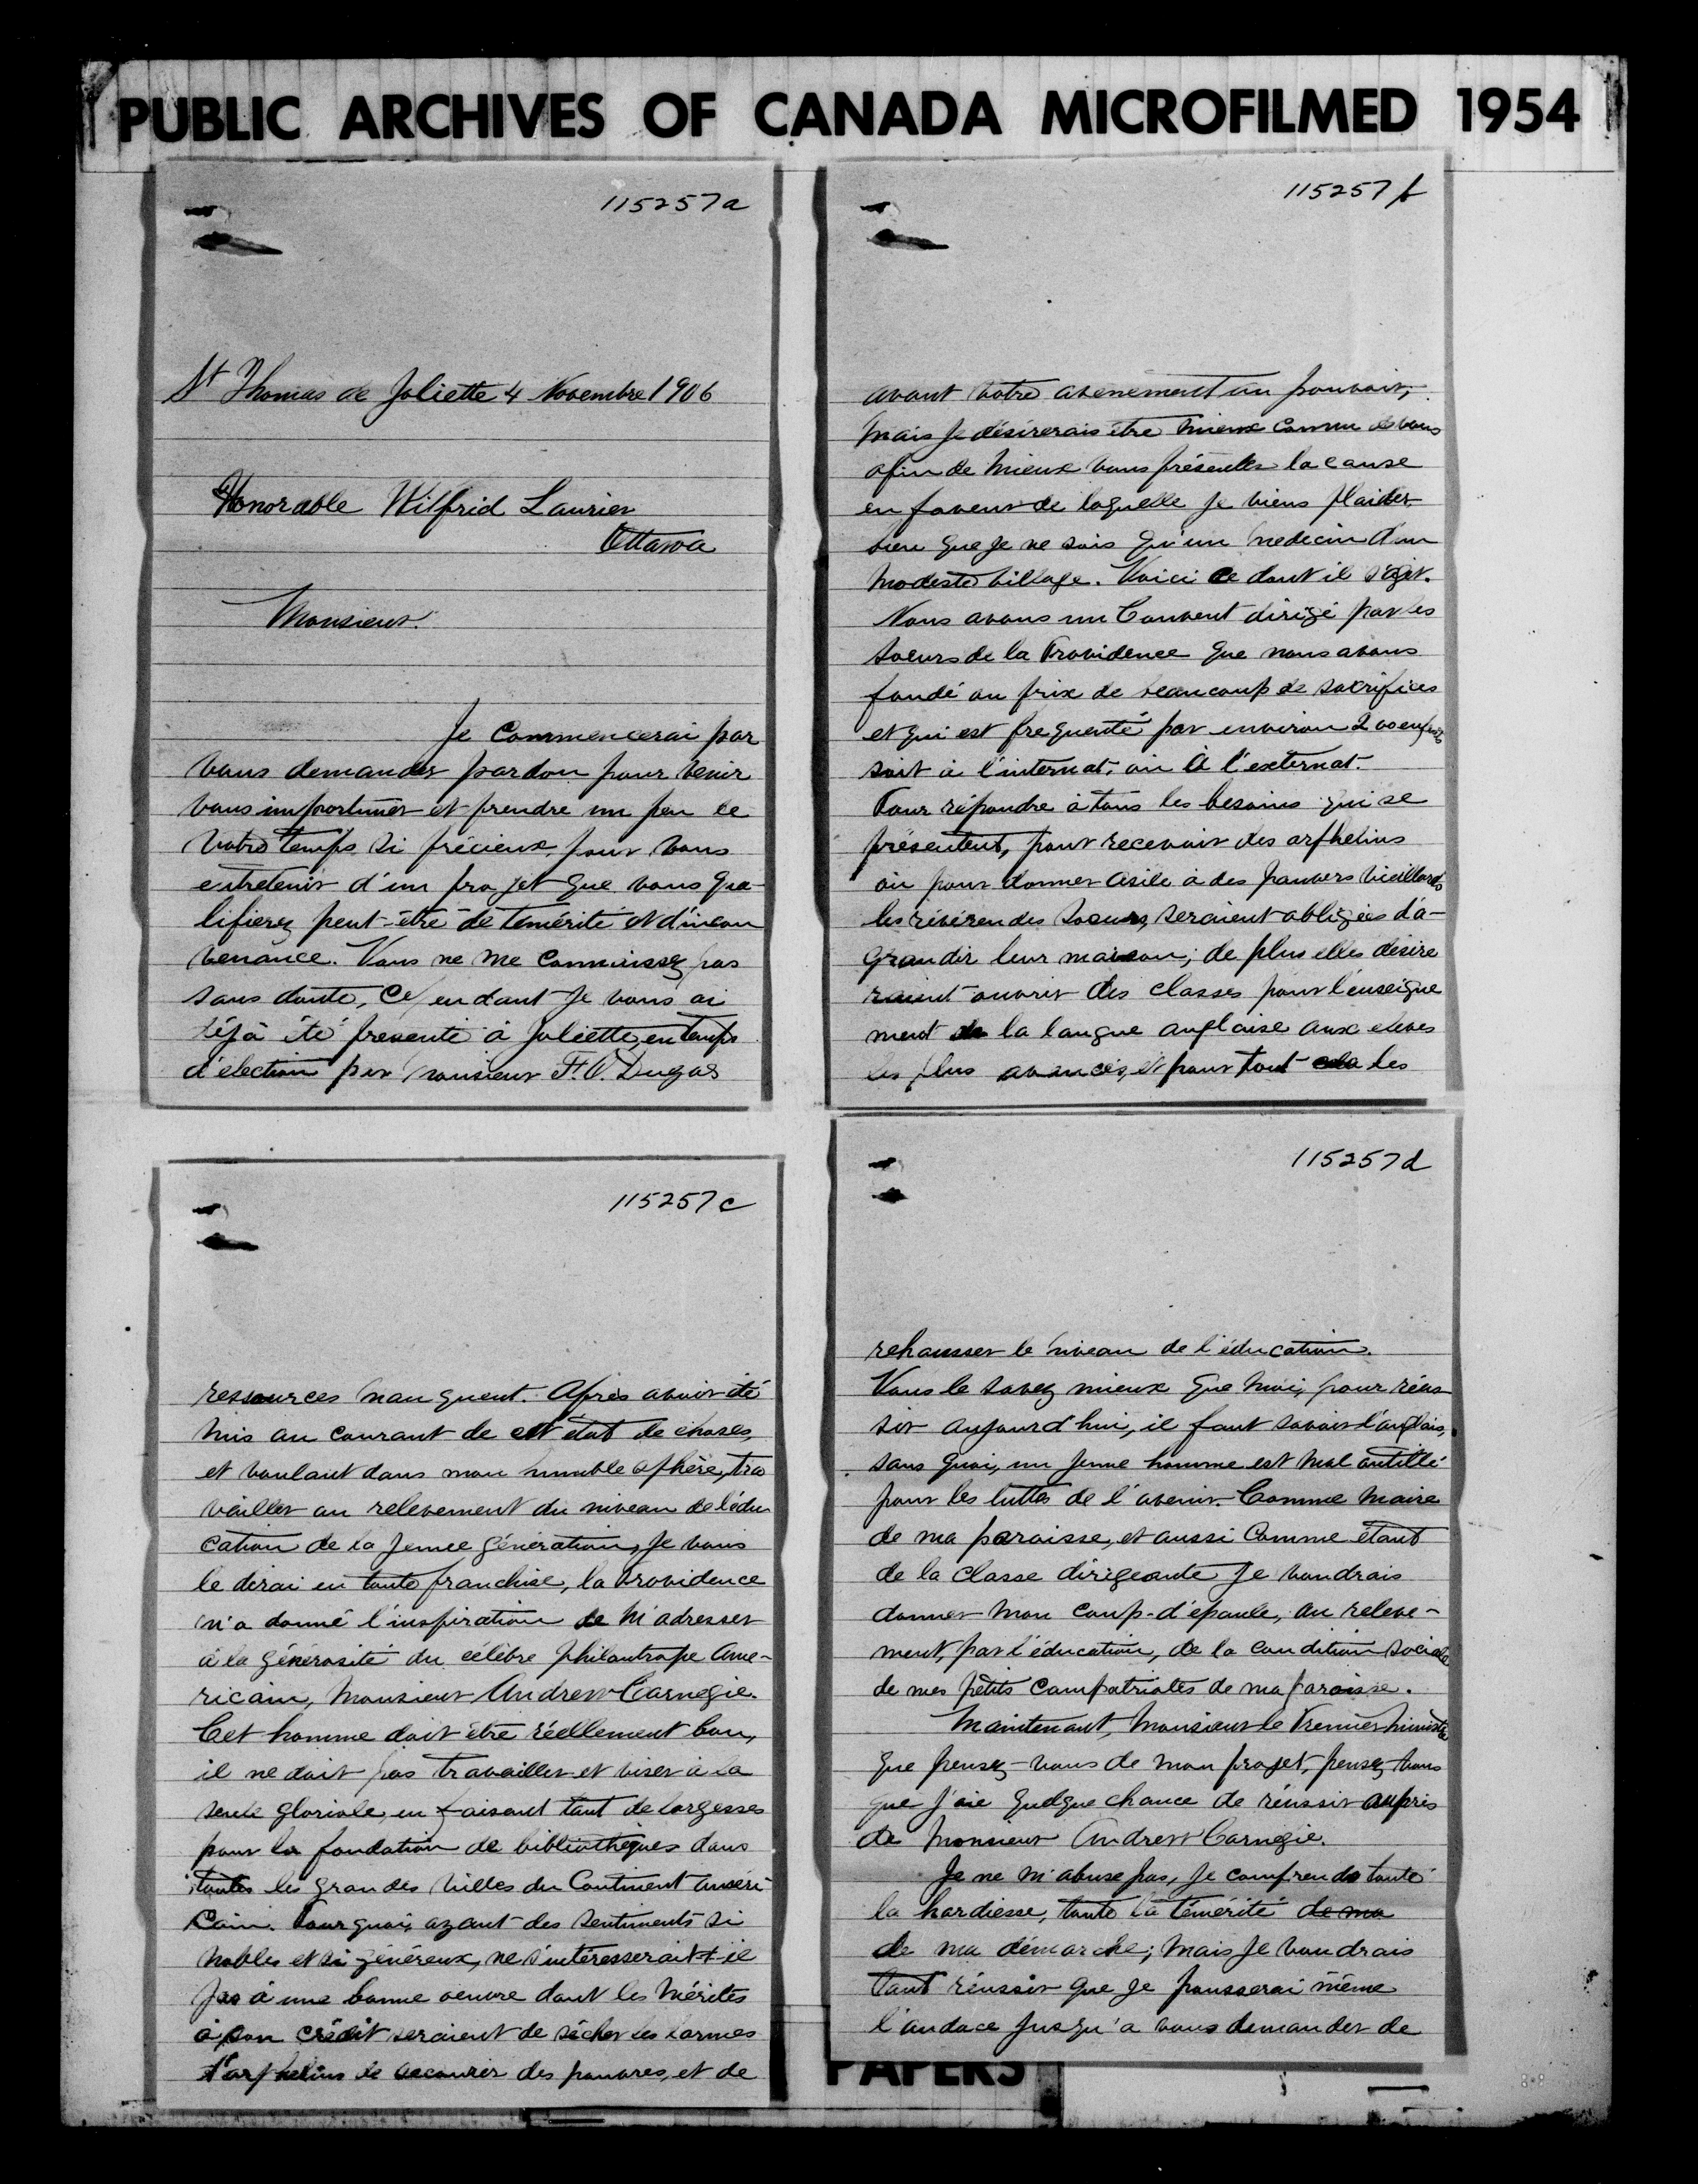 PUBLIC ARCHIVES OF CANADA MICROFILMED 1954
115257a
St Thomas de Joliette 4 Novembre 1906
Honorable Wilfrid Laurier
Ottawa
Monsieur.
Je commencerai par
vous demander pardon pour venir
vous importuner et prendre un peu de
votre temps si précieux, pour vous
entretenir d'un projet que vous qua-
lifierez peut-être de temérité et d'incon
venance. Vous ne me connaissez pas
sans doute, cependant je vous ai
déjà été presenté à Joliette, en temps
d'élection par monsieur F. O. Dugas
115257b
avant votre avenement au pouvoir,
mais je désirerais être mieux connu de vous
afin de mieux vous présenter la cause
en faveur de laquelle je viens plaider
bien que je ne sois qu'un medecin d'un
modeste village. Voici ce dont il s'agit.
Nous avons un Couvent dirigé par les
Soeurs de la Providence que nous avons
fondé au prix de beaucoup de sacrifices
et qui est frequenté par environ 200 enfants
soit à l'internat, ou à l'externat.
Pour répondre à tous les besoins qui se
présentent, pour recevoir des orphelins
ou pour donner asile à des pauvres vieillards
les révérendes soeurs, seraient obligées d'a-
grandir leur maison; de plus elles désire
raient ouvrir des classes pour l'enseigne
ment de la langue anglaise aux élèves
les plus avancés, et pour tout cela les
115257c
ressources manquent. Après avoir été
mis au courant de cet état de choses,
et voulant dans mon humble sphère, tra
vailler au relevement du niveau de l'édu
cation de la jeune génération, je vous
le dirai en toute franchise, la Providence
m'a donné l'inspiration de m'adresser
à la générosité du célèbre philantrope Ame-
ricain, monsieur Andrew Carnegie.
Cet homme doit être réellement bon,
il ne doit pas travailler et viser à la
seule gloriole, en faisant tant de largesses
pour la fondation de bibliothèques dans
toutes les grandes villes du Continent améri-
cain. Pourquoi, ayant des sentiments si
nobles et si généreux, ne s'intéresserait-il
pas à une bonne oeuvre dont les mérites
à son crédit seraient de sécher les larmes
d'orphelins de secourir des pauvres, et de
115257d
rehausser le niveau de l'éducation.
Vous le savez mieux que moi, pour réus
sir aujourd'hui, il faut savoir l'anglais,
sans quoi, un jeune homme est mal outillé
pour les luttes de l'avenir. Comme maire
de ma paroisse, et aussi comme étant
de la classe dirigeante je voudrais
donner mon coup-d'épaule, au releve-
ment, par l'éducation, de la condition sociale
de mes petits compatriotes de ma paroisse.
Maintenant, monsieur le Premier ministre
que pensez-vous de mon projet, pensez-vous
que j'aie quelque chance de réussir auprès
de monsieur Andrew Carnegie.
Je ne m'abuse pas, je comprends toute
la hardiesse, toute la témérité de ma
de ma démarche; mais je voudrais
tant réussir que je pousserai même
l'audace jusqu'a vous demander de
PAPERS